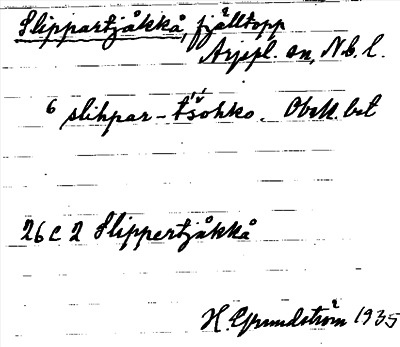 Slippartjåkkå, fjälltopp
Arjepl. sn, N.b. l.
6 slihpar-tšohko. Obekl. bet
26 C 2 Slippertjåkkå
H. Grundström 1935